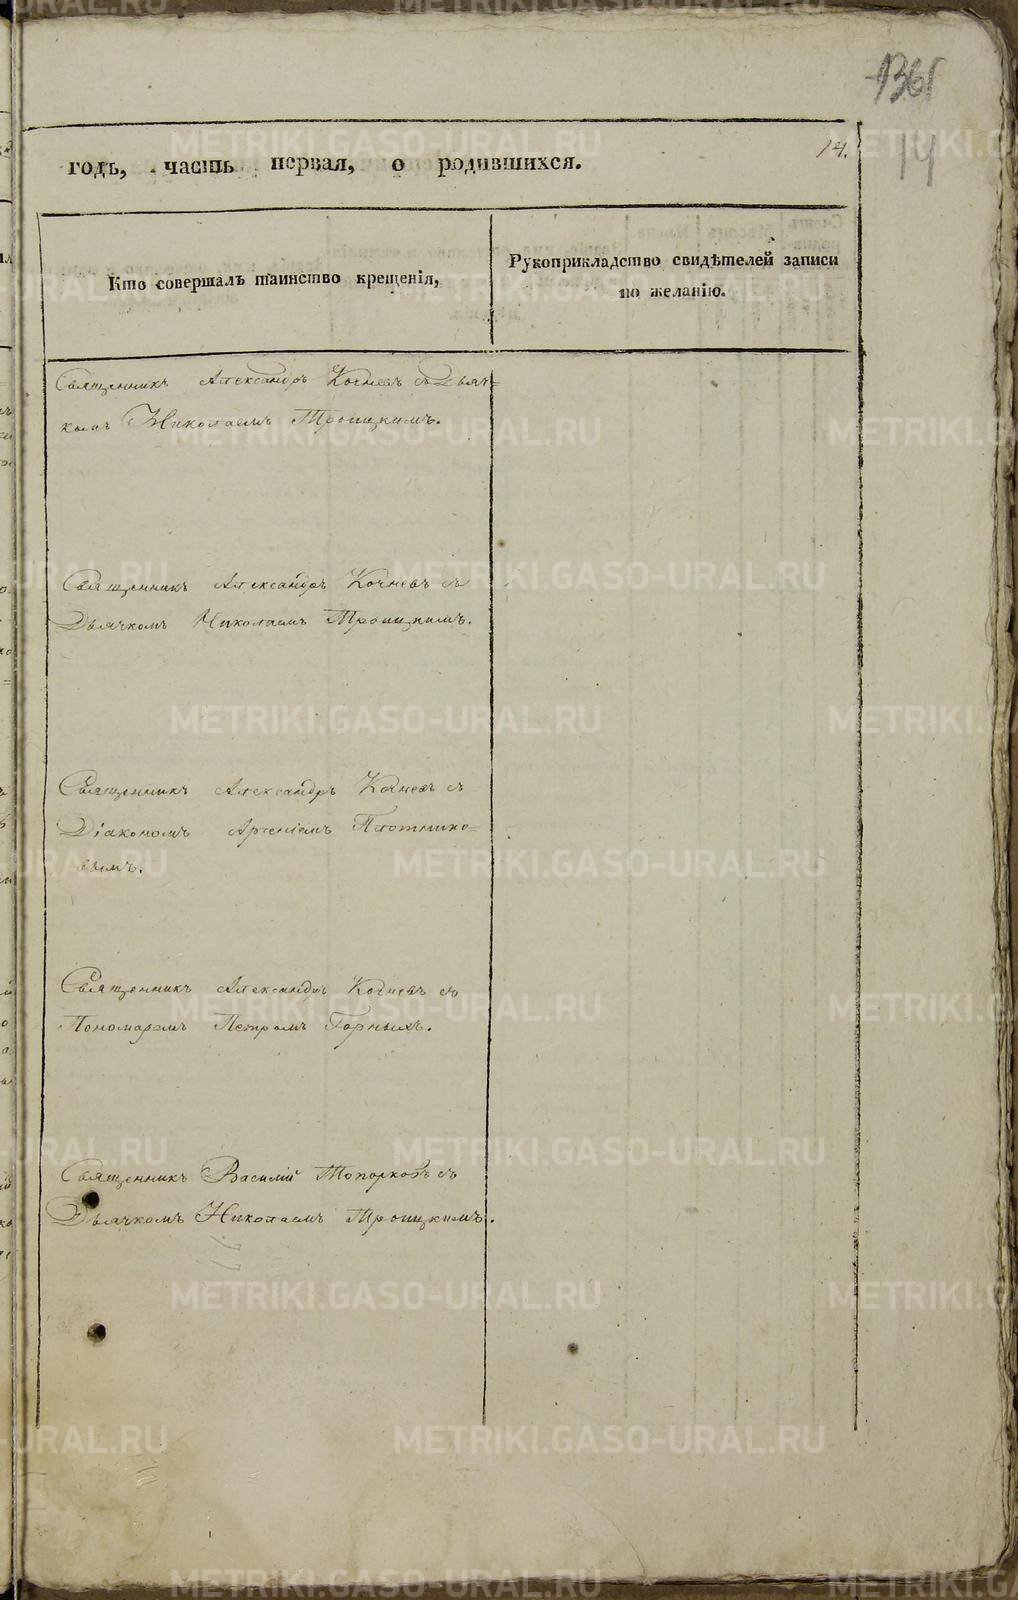 136
14.
14
годъ, часть первая, о родившихся.
Кто совершалъ таинство крещенія,
Рукоприкладство свидѣтелей записи
по желанію.
Священникъ Александръ Кочневъ съ Дьяч=
комъ Николаемъ Троицкимъ.
Священникъ Александръ Кочневъ съ
Дьячкомъ Николаемъ Троицкимъ.
Священникъ Александръ Кочневъ съ
Діакономъ Арсеніемъ Плотнико=
вымъ.
Священникъ Александръ Кочневъ съ
Пономаремъ Петромъ Горныхъ.
Священникъ Василій Топорковъ съ
Дьячкомъ Николаемъ Троицкимъ.
METRIKI.GASO-URAL.RU